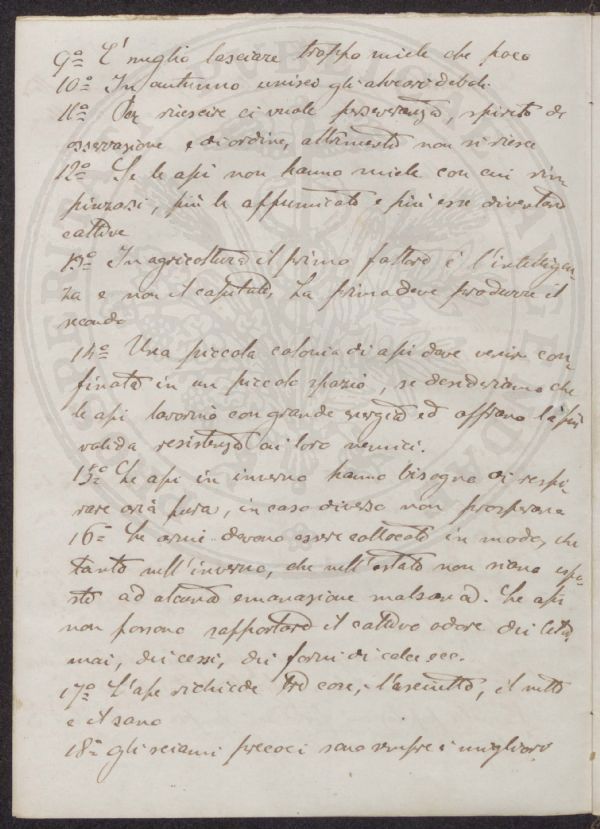 9º È meglio lasciare troppo miele che poco
10º In autunno unisci gli alveari deboli
11º Per riescire ci vuole perseveranza, spirito di
osservazione e di ordine, altrimenti non si riesce
12º Se le api non hanno miele con cui rim
pinzarsi, più le affumicate e più esse diventano
cattive
13º In agricoltura il primo fattore è l'intelligen
za e non il capitale, La prima deve produrre il
secondo
14º Una piccola colonia di api deve venir con
finata in un piccolo spazio, se desideriamo che
le api lavorino con grande energia ed offrano la più
valida resistenza ai loro nemici.
15º Le api in inverno hanno bisogno di respi
rare aria pura, in caso diverso non prosperano
16º Le arnie devono essere collocate in modo, che
tanto nell'inverno, che nell'estate non siano espo
ste ad alcuna emanazione malsana. Le api
non possono sopportare il cattivo odore dei leta
mai, dei cessi, dei forni di calce ecc.
17º L'ape richiede tre cose, l'asciutto, il netto
e il sano
18º gli sciami precoci sono sempre i migliori